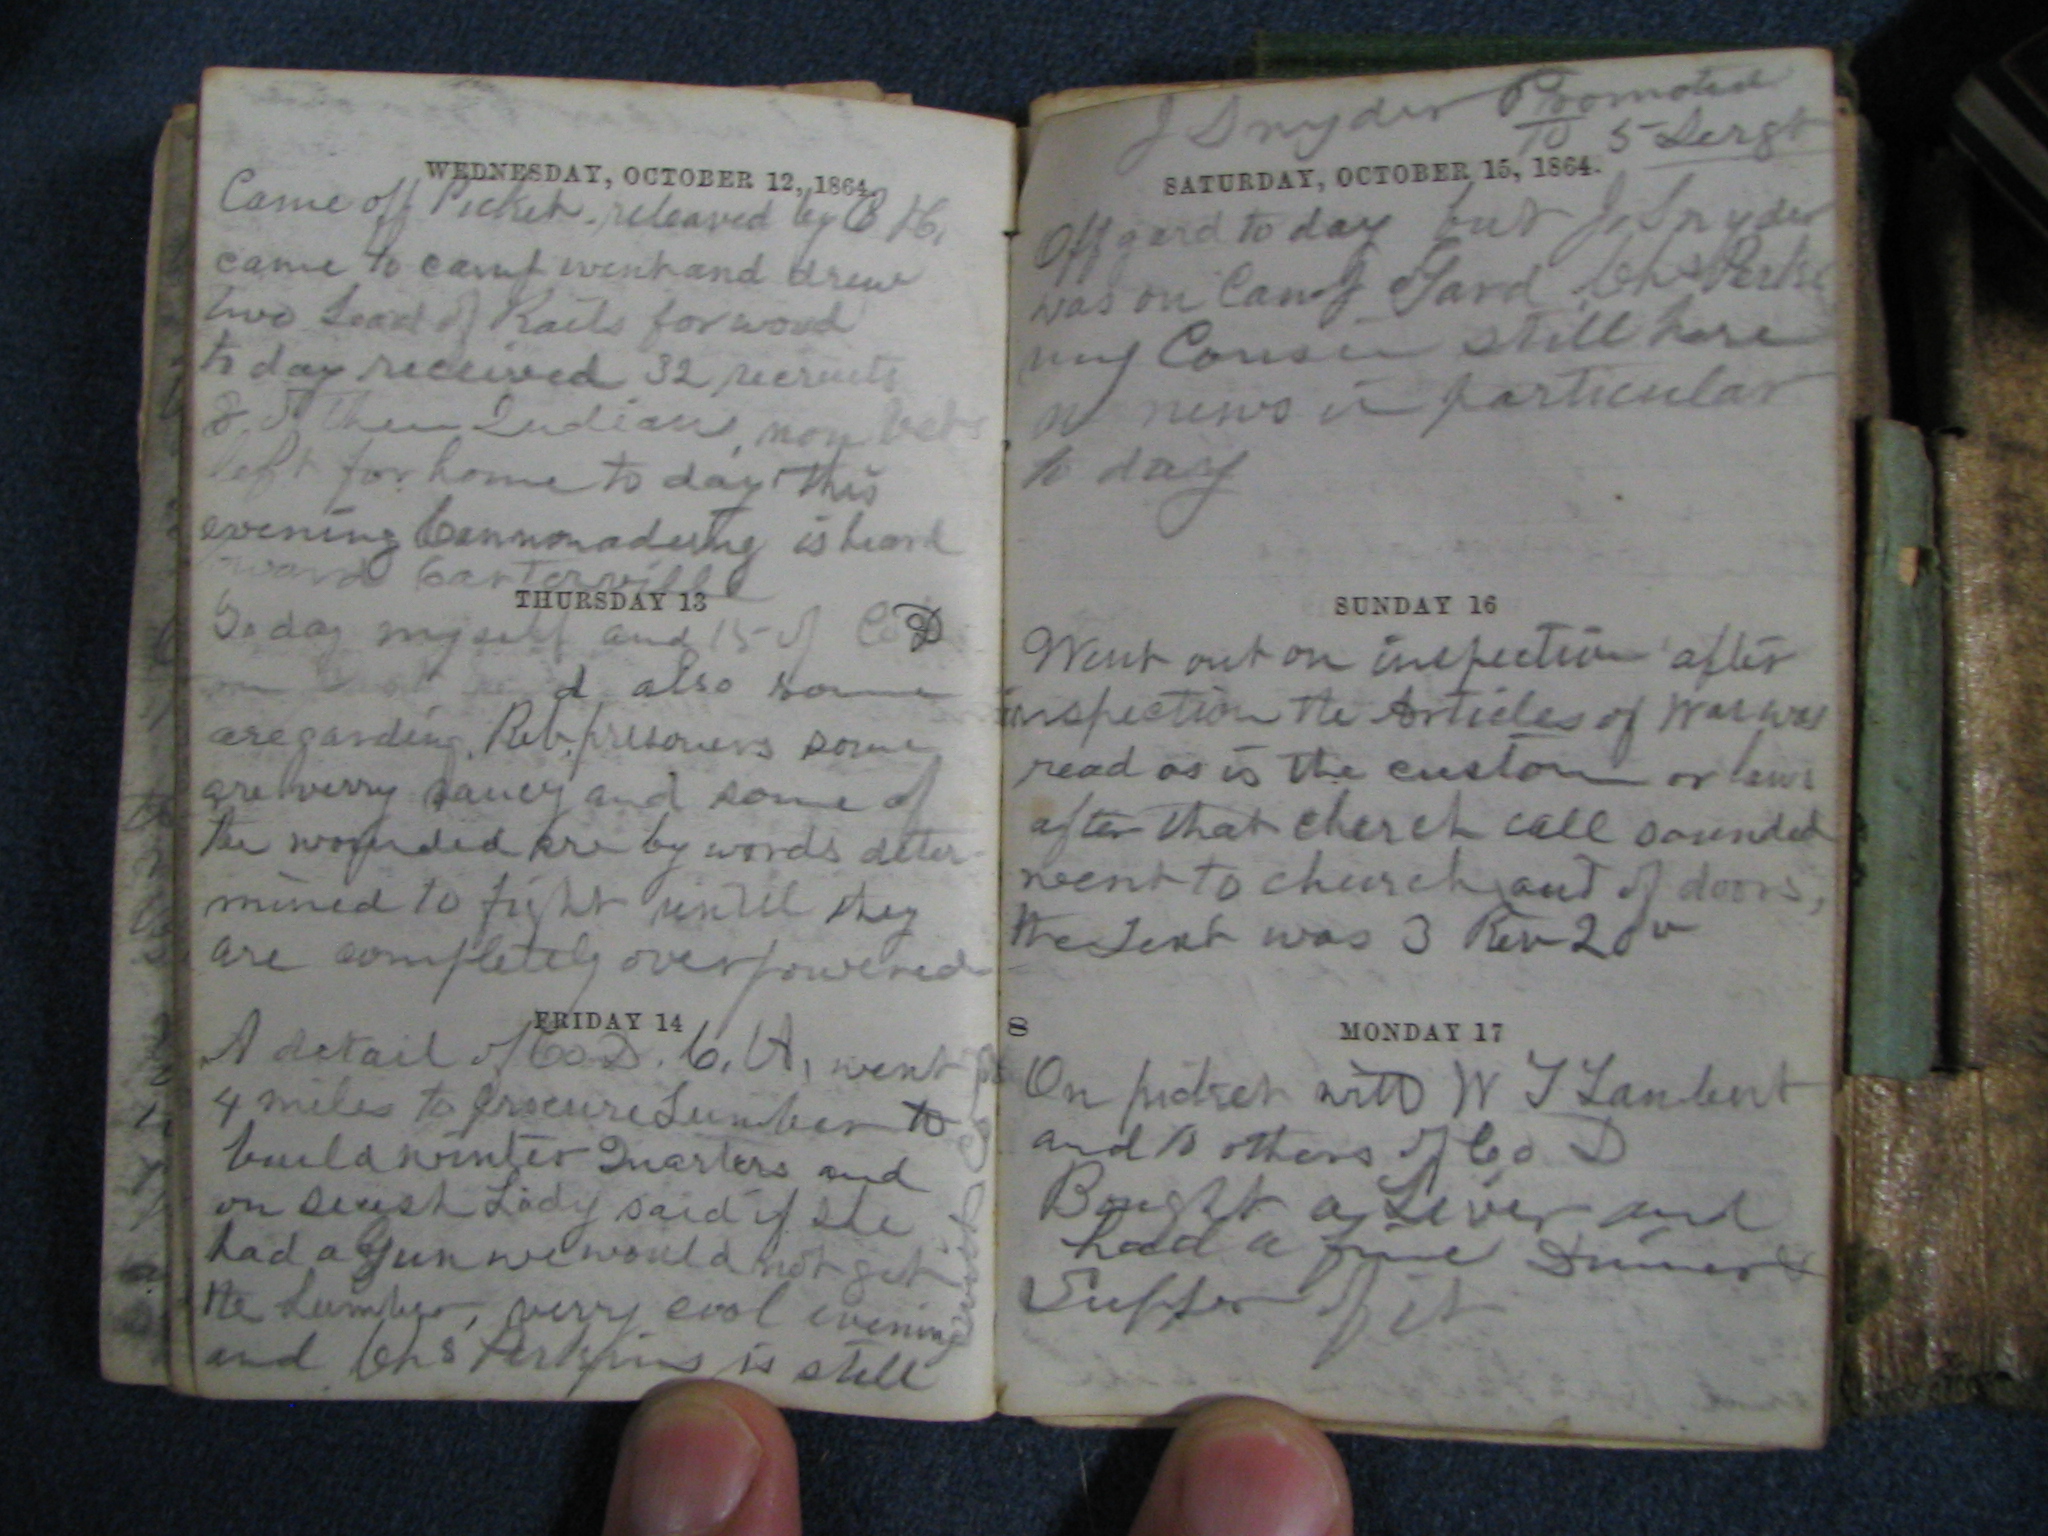 WEDNESDAY, OCTOBER 12, 1864.
Came off Picket. releaved by C H,
came to camp went and drew
two Load of Rails for wood
to day received 32 recruits
8 of them Indians, non Vets
left for home to day this
evening Cannonadeing is heard
ward Carterville
THURSDAY 13
To day myself and 15 of Co D
d also some
are garding Reb. presoners some
are verry saucy and some of
the wounded are by words deter-
mined to fight untill they
are completely overpowered
FRIDAY 14
A detail of Co D. C, A, went
4 miles to procure Lumber to
build winter Quarters and
on secesh Lady said if she
had a Gun we would not get
the Lumber, verry cool evening
and Chs Perkins is still
with Co
J Snyder Promoted
To 5 Sergt
SATURDAY, OCTOBER 15, 1864.
Off gard to day but J. Snyder
was on Camp Gard Chs Perkins
my Cousin still here
no news in particular
to day
SUNDAY 16
Went out on inspection after
inspection the Articles of War was
read as is the custom or laws
after that cherch call sounded
went to church out of doors,
the Text was 3 Rev 20 v
8
MONDAY 17
On picket with W T Lambert
and 10 others of Co D
Bought a Liver and
had a fine Dinner &
Supper of it